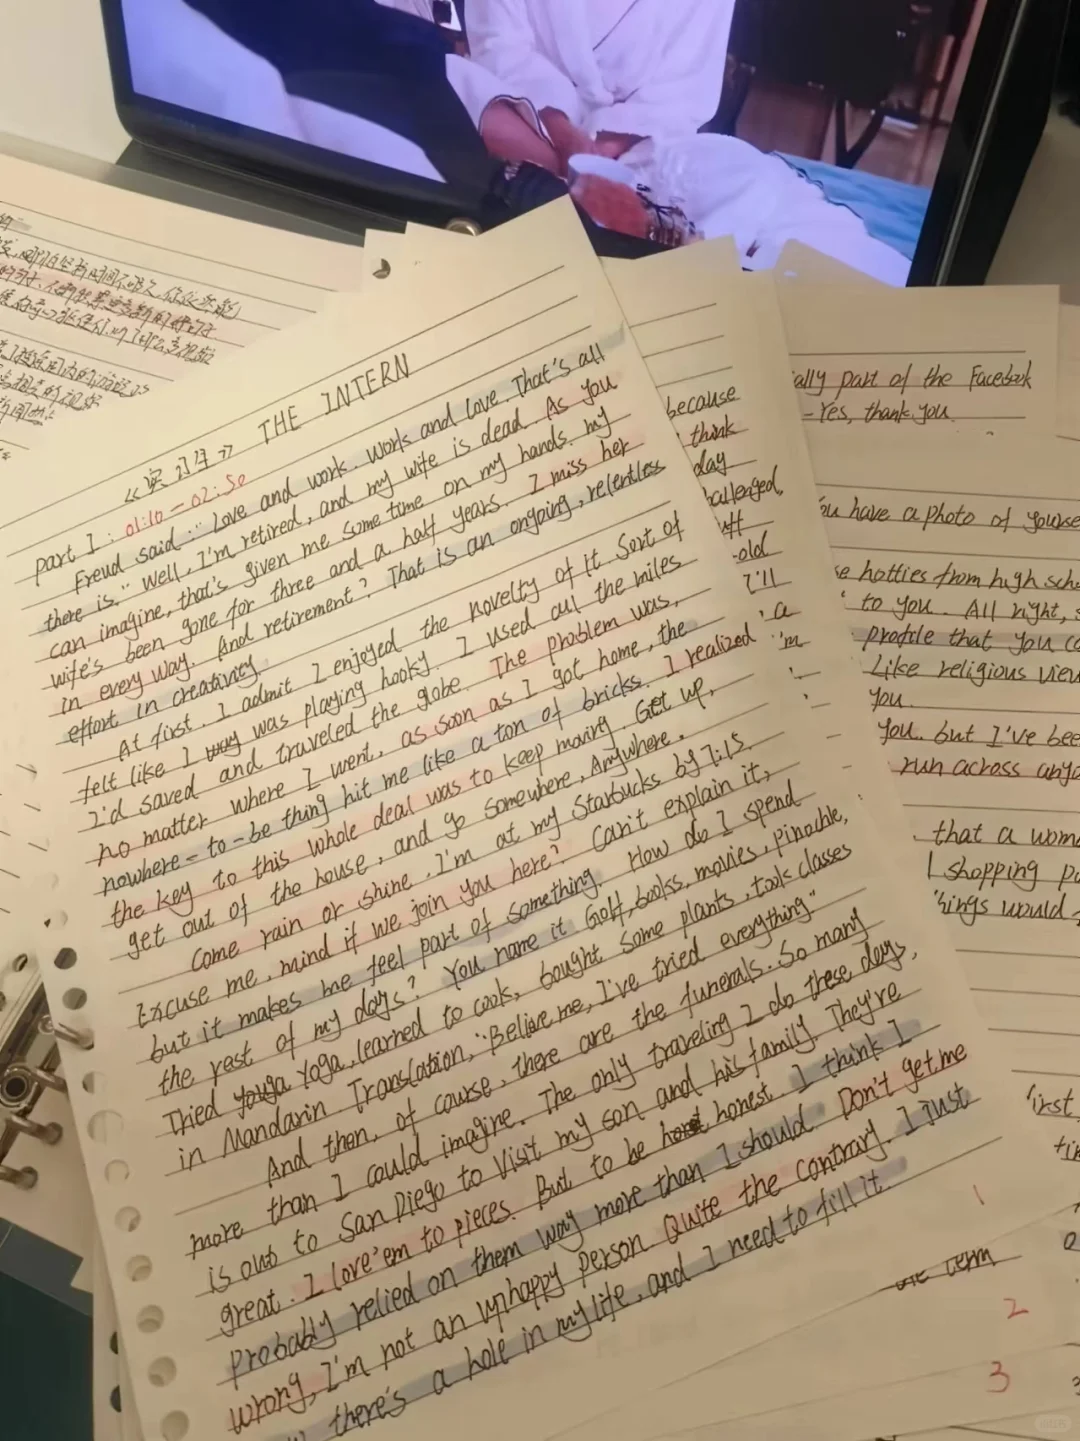 《实习生》 THE INTERN
part I : 01:10 - 02:50
Freud said : "Love and work. Works and love. That's all
there is." Well, I'm retired, and my wife is dead. As you
can imagine, that's given me some time on my hands. my
wife's been gone for three and a half years. I miss her
in every way. And retirement? That is an ongoing, relentless
effort in creativity.
At first, I admit I enjoyed the novelty of it. Sort of
felt like I was playing hooky. I used all the miles
I'd saved and traveled the globe. The problem was,
no matter where I went, as soon as I got home, the
nowhere-to-be thing hit me like a ton of bricks. I realized
the key to this whole deal was to keep moving. Get up,
get out of the house, and go somewhere, Anywhere.
Come rain or shine, I'm at my Starbucks by 7:15.
Excuse me, mind if we join you here? Can't explain it,
but it makes me feel part of something. How do I spend
the rest of my days? You name it Golf, books, movies, pinochle,
Tried Yoga, learned to cook, bought some plants, took classes
in Mandarin Translation, "Believe me, I've tried everything"
And then, of course, there are the funerals.. So many
more than I could imagine. The only traveling I do these days,
is out to San Diego to Visit my son and his family. They're
great. I love'em to pieces. But to be honest. I think I
probably relied on them way more than I should. Don't get me
wrong, I'm not an unhappy person Quite the contrary. I just
there's a hole in my life, and I need to fill it.
because
think
day
-old
I'll
a
'm
ally part of the Facebook
-Yes, thank you.
ou have a photo of yourse
e hotties from high scho
to you. All right, s
profile that you co
Like religious view
you.
you. but I've bee
run across anyo
that a wom
shopping p
hings would
the term
1
2
3